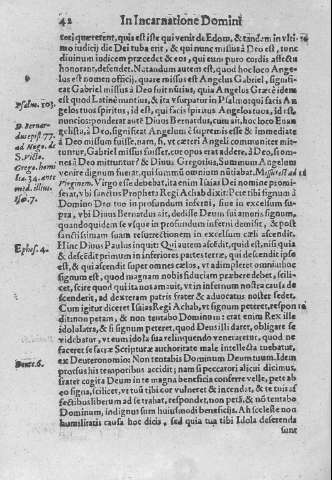 42 In Incarnatione Domini
teri quærerent, quis est iste qui venit de Edom, & tandem in ulti
mo iudicij die Dei tuba erit, & qui nunc missus à Deo est, tunc
dicium iudicem præcedet & eos, qui eum puro cordis affectu
honorant, defendet. Notandum autem est, quod hoc loco Ange-
lus est nomen officij, quare missus est Angelus Gabriel, signifi-
cat Gabriel missus à Deo fuit nuntius, quia Angelus Græcè idem
est quod Latinè nuntius, & ita usurpatur in Psalmo: qui facis An
gelos tuos spiritus, id est, qui facis spiritus Angelos tuos, id est,
nuncios: ponderat autē Divus Bernardus, cum ait, hoc loco Euan
gelista, à Deo, significat Angelum è supremis esse & immediatè
à Deo missum fuisse, nam, si, vt cæteri Angeli communiter mit-
tuntur, Gabriel missus fuisset, cur opus erat addere, à Deo, si om-
nes à Deo mittuntur? & Divus Gregorius, Summum Angelum
venire dignum fuerat, qui summū omnium nūtiabat. Missus est ad
Virginem. Virgo esse debebat, ita enim Isaias Dei nomine promi-
serat, vbi sanctus Propheta Regi Achab dixit: Pete tibi signum à
Domino Deo tuo in profundum inferni, siue in excelsum su-
pra, vbi Divus Bernardus ait, dedisse Deum sui amoris signum,
quandoquidem se vsque in profundum inferni demisit, & post
sanctissimam suam resurrectionem in excelsum cæli ascendit.
Hinc Divus Paulus inquit: Qui autem ascēdit, quid est, nisi quia
& descēdit primum in inferiores partes terræ, qui descendit ipse
est, & qui ascendit super omnes cælos, vt adimpleret omnia: hoc
signum est, quod magnam nobis fiduciam præbere debet, scili-
cet, scire quod qui ita nos amauit, vt in infernum nostra causa de
scenderit, ad dexteram patris frater & aduocatus noster sedet.
Cum igitur diceret Isaias Regi Achab, vt signum peteret, respon
dit: non petam, & non tentabo Dominum: erat enim Rex ille
idololatra, & si signum peteret, quod Deus illi daret, obligare se
videbatur, vt eum idola sua relinquendo veneraretur, quod ne
faceret se sacræ Scripturæ authoritate malè intellecta tuebatur,
ex Deuteronomio: Non tentabis Dominum Deum tuum. Idem
prorsus his temporibus accidit; nam si peccatori alicui dicimus,
frater cogita Deum in te magna beneficia conferre velle, pete ab
eo signa, scilicet, vt tuū tibi cor vulneret & incendat, & te tuis af
fectibus liberum ad se trahat, respondet, non petā, & nō tentabo
Dominum, indignus sum huiusmodi beneficijs. Ah sceleste non
humilitatis causa hoc dicis, sed quia tua tibi Idola deserenda
sunt
Psalm. 103.
D. Bernar-
dus epist. 77.
ad Hugo. de
S. Victo.
Grego. homi
lia. 34. ante
med. illius.
Isa. 7.
Ephes. 4.
Deut. 6.